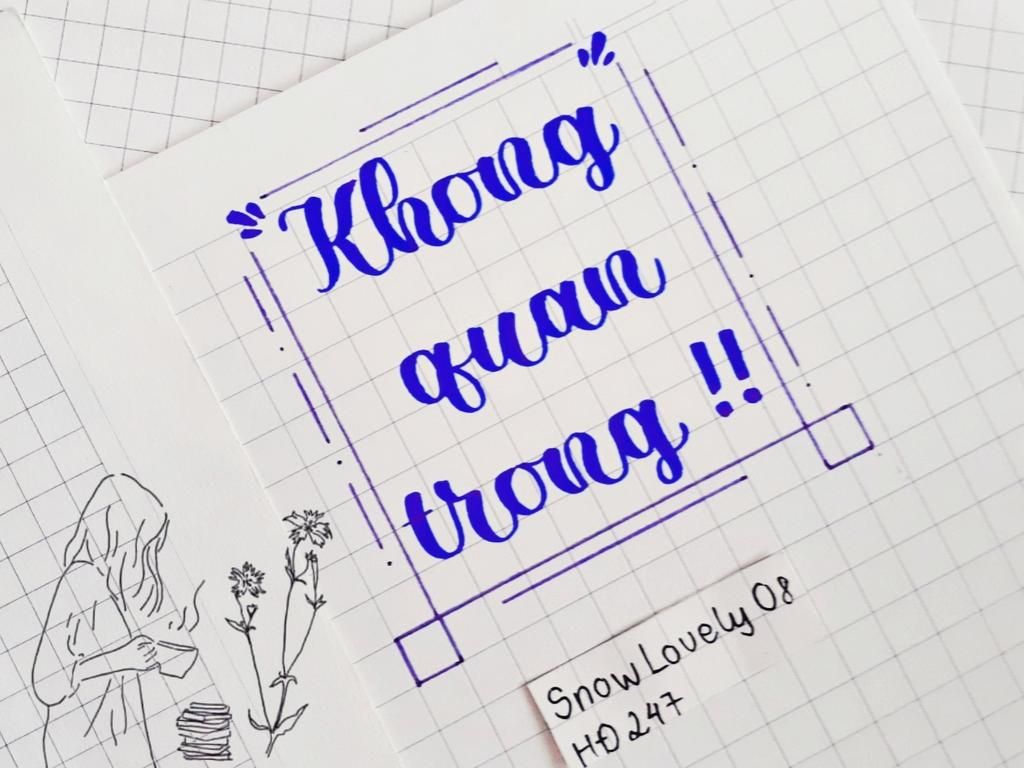 Khong
quan
trong !!
SnowLovely 08
HĐ247